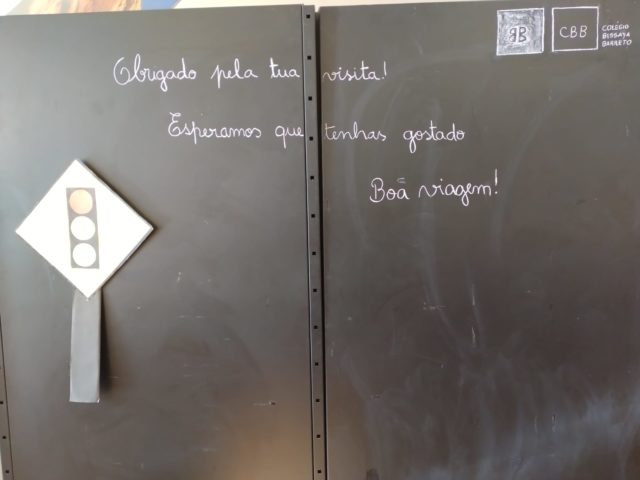 Obrigado pela tua visita!
Esperamos que tenhas gostado
Boã viagem!
BB
CBB
COLÉGIO
BISSAYA
BARRETO